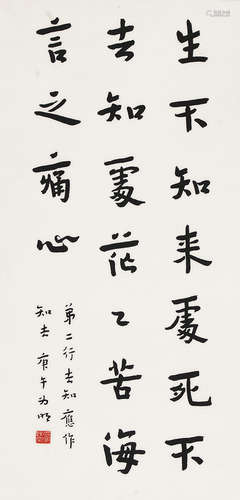 生不知来處死不
去知處茫々苦海
言之痛心
第二行去知應作
知去 庚午为